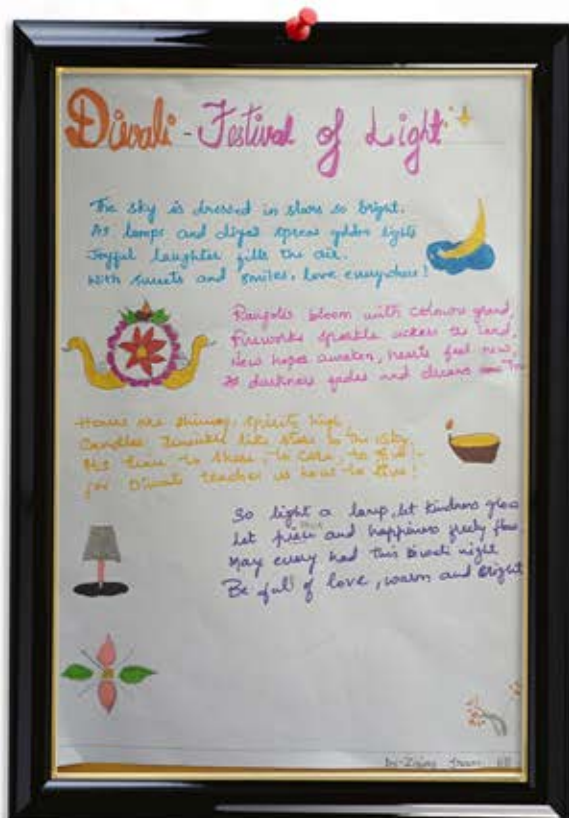 Diwali - Festival of Light
The sky is dressed in stars so bright.
As lamps and diyas spread golden lights
Joyful laughter fills the air.
With sweets and smiles, love everywhere!
Rangolis bloom with colours grand,
Fireworks sparkle across the land,
New hopes awaken, hearts feel new,
As darkness fades and dreams come
Homes are shining, spirits high,
Candles twinkle like stars in the sky
It's time to share, to care, to give -
for Diwali teaches us how to live!
So light a lamp, let kindness glow
Let peace and happiness freely flow
May every this Diwali night
Be full of love, warm and bright
by-